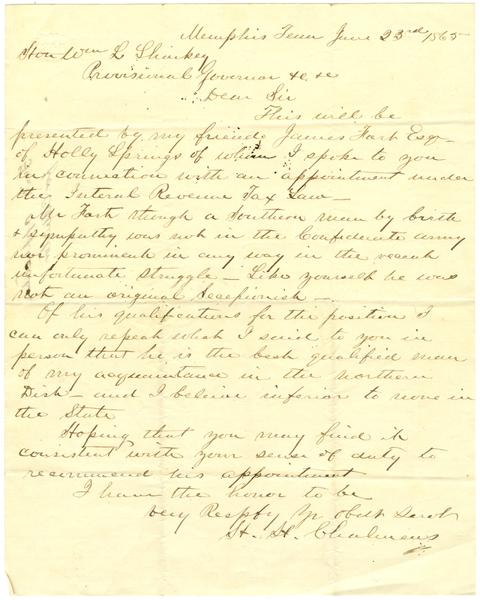 Memphis Tenn June 23rd 1865
Hon Wm L Sharkey
Provisional Governor &c &c
Dear Sir
This will be
presented by my friend James Fort Esq
of Holly Springs of whom I spoke to you
in connection with an appointment under
the Internal Revenue Tax Law —
Mr Fort though a Southern man by birth
& sympathy was not in the Confederate army
nor prominent in any way in the recent
unfortunate struggle — Like yourself he was
not an original Secessionist —
Of his qualifications for the position I
can only repeat what I said to you in
person that he is the best qualified man
of my acquaintance in the northern
Dist — and I believe inferior to none in
the State
Hoping that you may find it
consistent with your sense of duty to
recommend his appointment
I have the honor to be
very Respfy Yr Obdt Servt
H. H. Chalmers